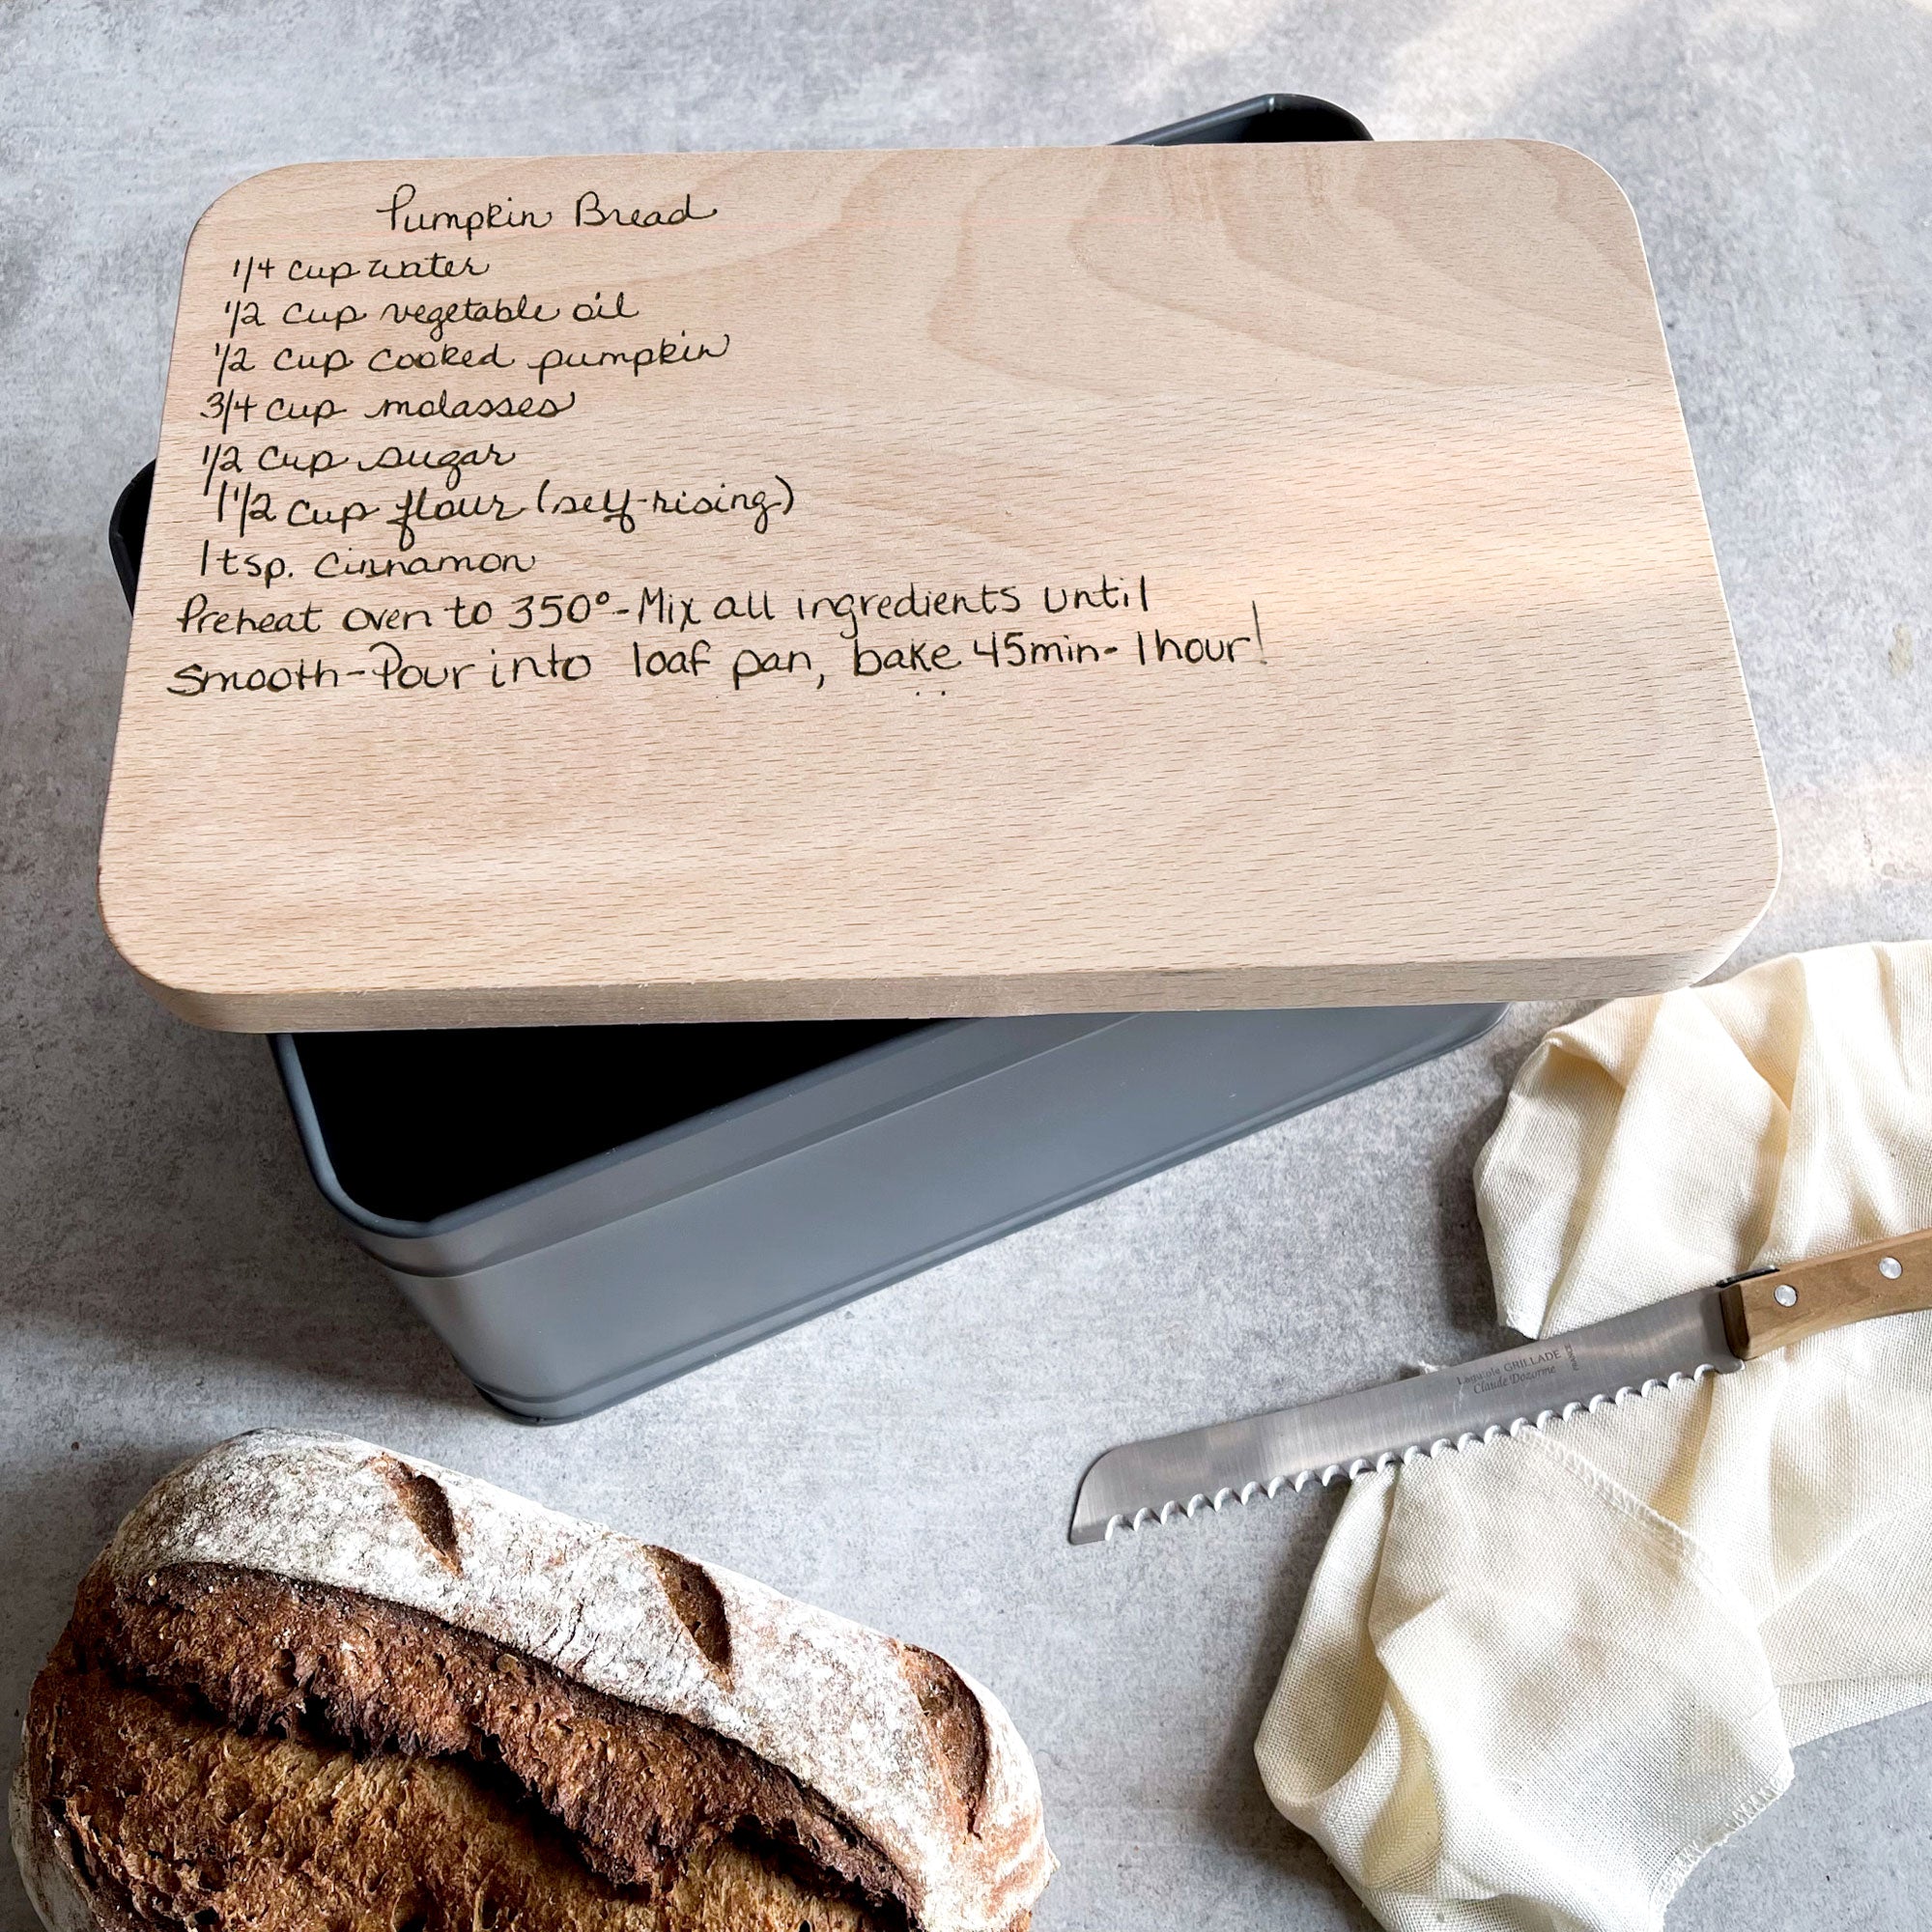 Pumpkin Bread
1/4 cup water
1/2 cup vegetable oil
1/2 cup cooked pumpkin
3/4 cup molasses
1/2 cup sugar
1 1/2 cup flour (self-rising)
1 tsp. cinnamon
Preheat oven to 350°-Mix all ingredients until
smooth-Pour into loaf pan, bake 45min-1hour!
Laguiole GRILLADE
Claude Dozorme
FRANCE